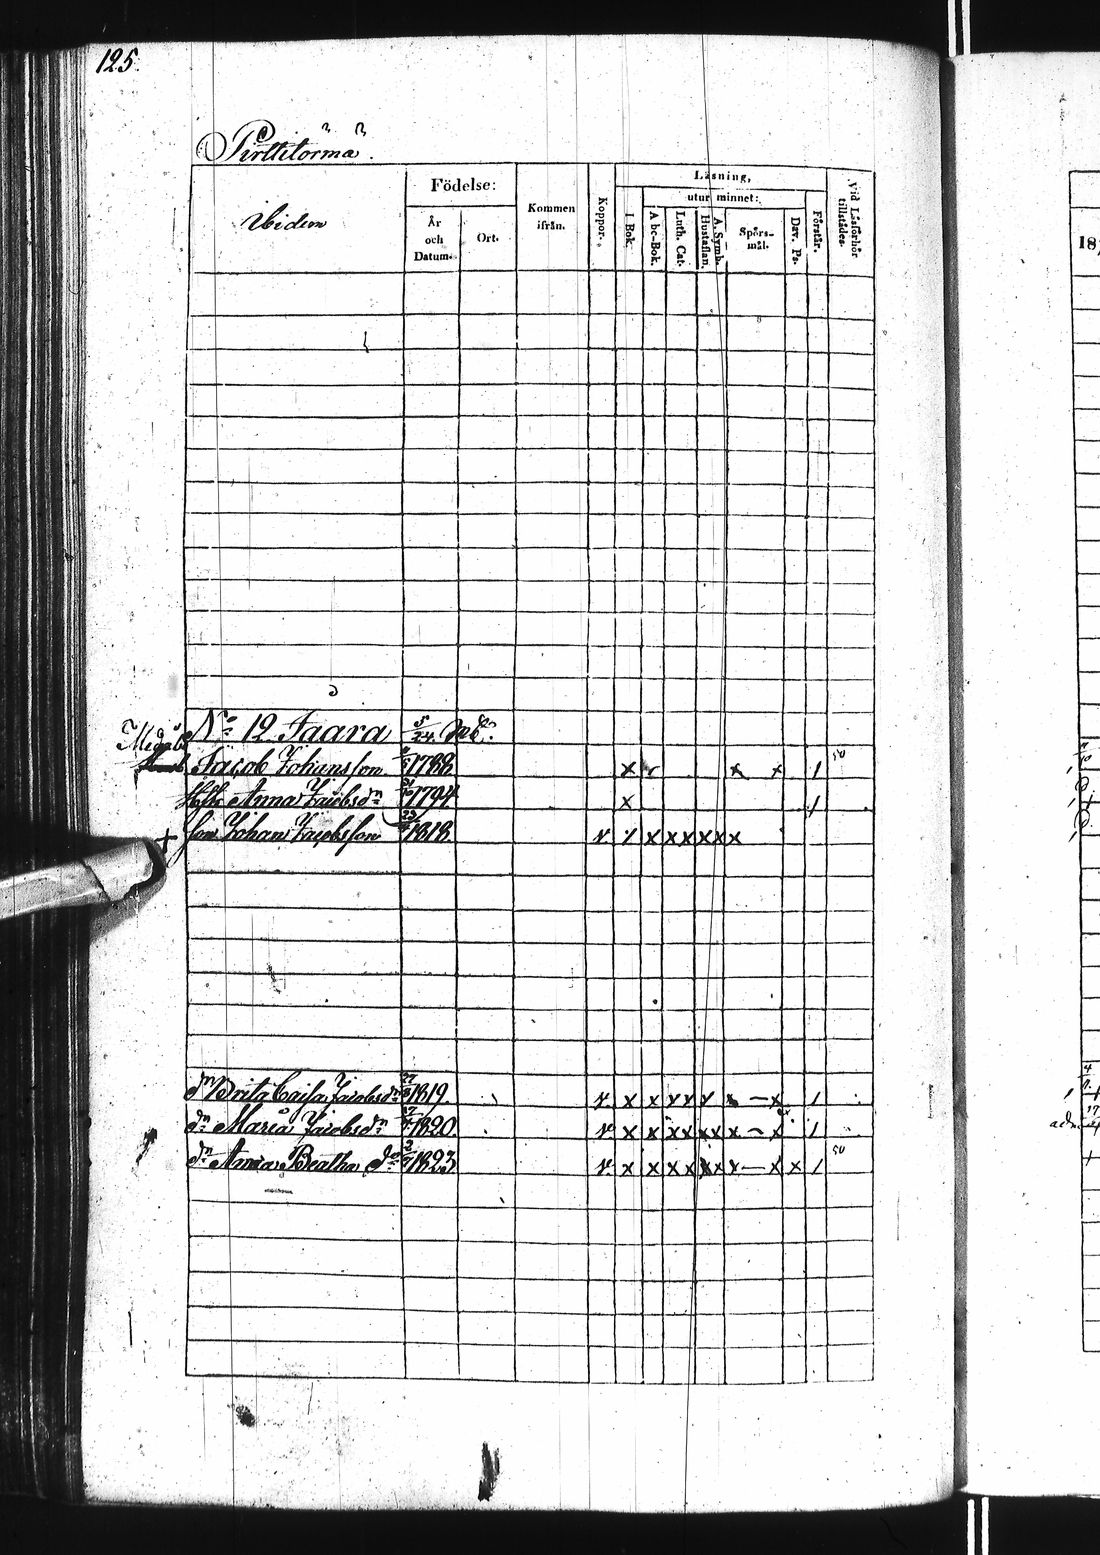 125.
Pirttitörmä.
Ibidem
Födelse:
År och Datum.
Ort.
Kommen ifrån.
Koppor.
Läsning,
utur minnet:
I Bok.
Abc-Bok.
Luth. Cat.
Hustaflan.
A. Symb.
Spörs-mål.
Dav. Ps.
Förstår.
Vid Läsförhör tillstädes.
No 12 Jaara 5/24
Jacob Johansson 1788 x x x 1 50
Anna Jacobsdr 1794 x 1
+ Son Johan Jacobsson 1818. v. x x x x x x
dr Brita Caisa Jacobsdr 1819. v. x x x x x x — x 1
dr Maria Jacobsdr 1820. v. x x x x x x x – x 1
dr Anna Beatha dr 1823 v. x x x x x x x — x x 1 50
18